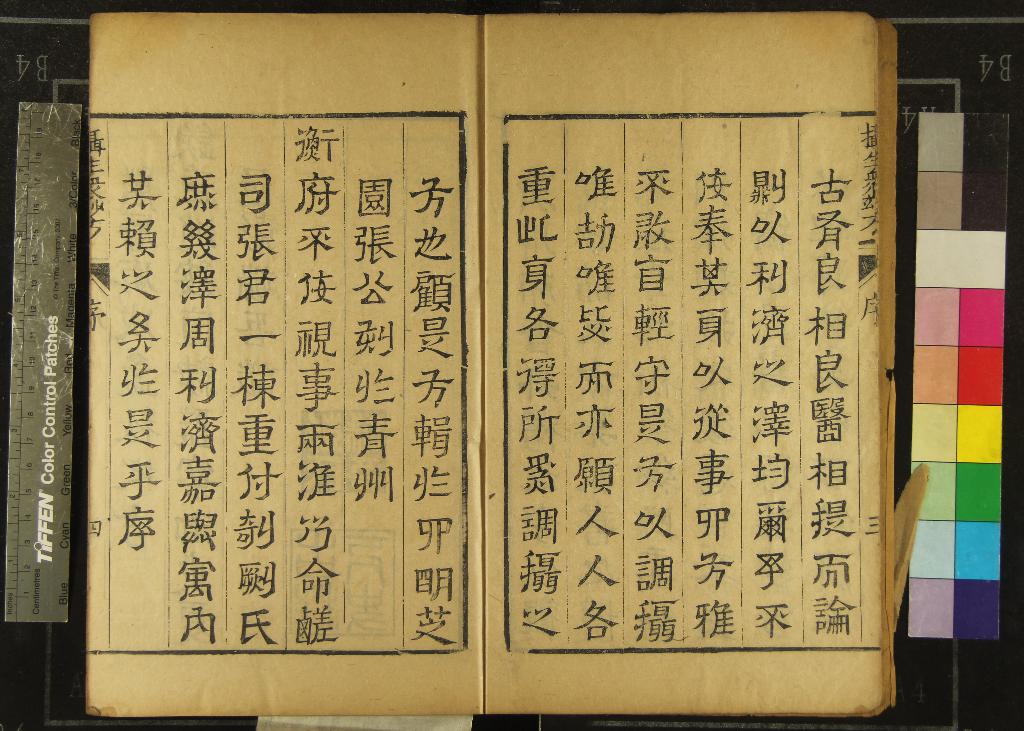 攝生衆妙方
序
三
古有良相良醫相提而論
則以利濟之澤均爾予不
佞奉其身以從事四方雅
不敢自輕守是方以調攝
唯劼唯毖而亦願人人各
重此身各得所爲調攝之
方也顧是方輯於四明芝
園張公刻於青州
衡府不佞視事兩淮乃命鹺
司張君一棟重付剞劂氏
庶幾澤周利濟嘉與寓內
其賴之矣於是乎序
攝生衆妙方
序
四
TIFFEN Color Control Patches
Centimetres
Inches
Blue
Cyan
Green
Yellow
Red
Magenta
White
3/Color
Black
B4
B4